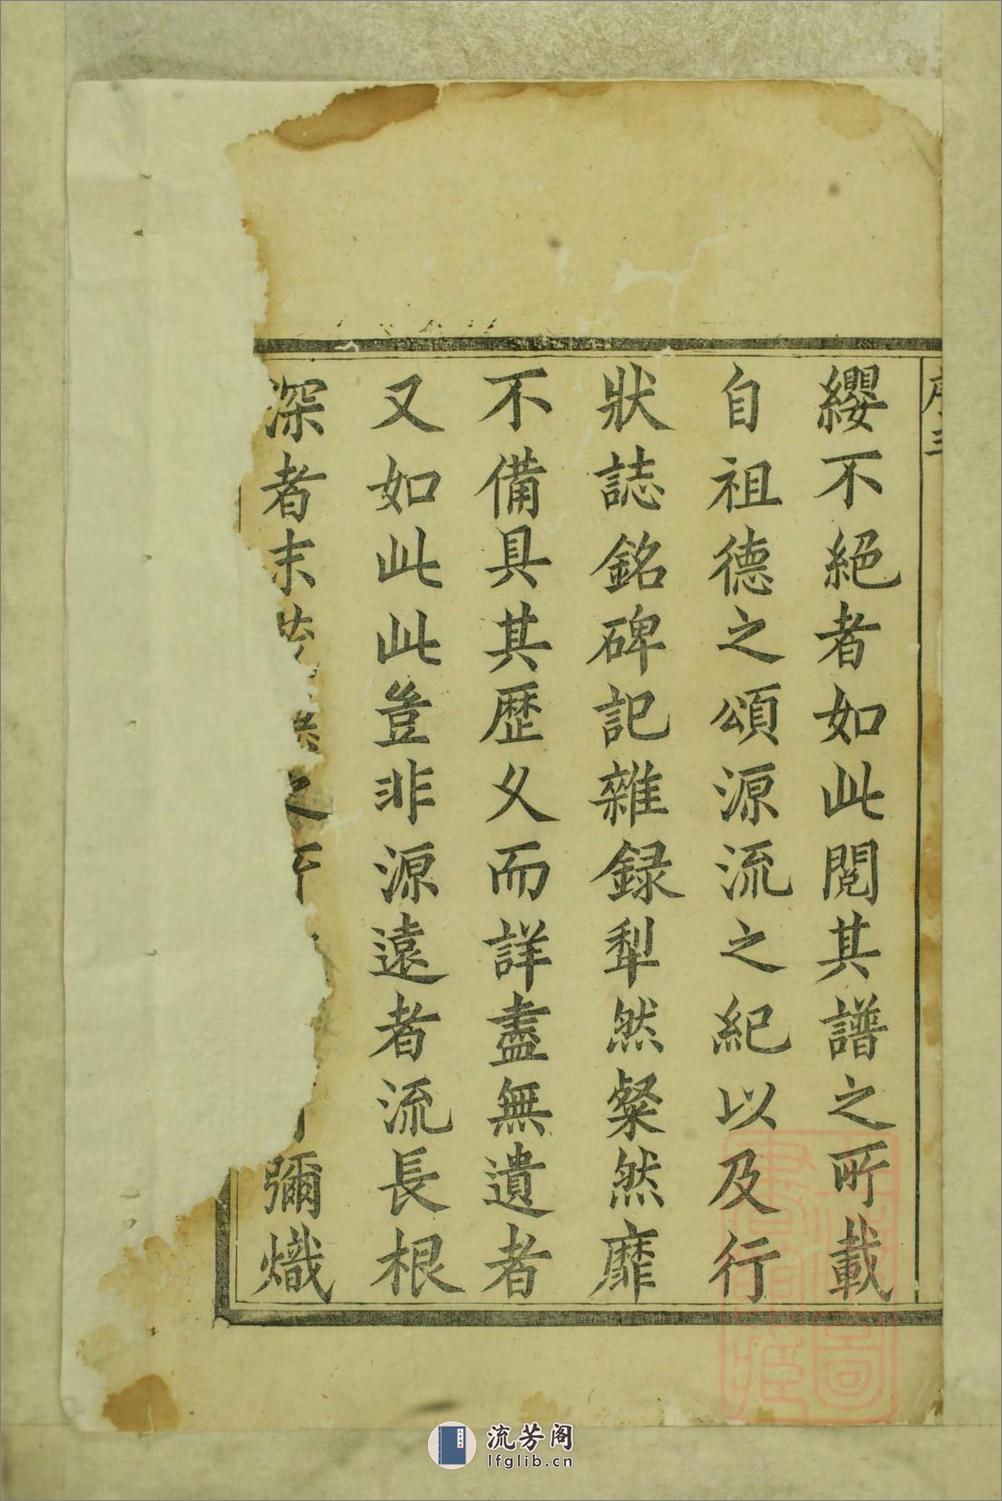 序三
纓不絕者如此閱其譜之所載
自祖德之頌源流之紀以及行
狀誌銘碑記雜録犁然粲然靡
不備具其歷乆而詳盡無遺者
又如此此豈非源遠者流長根
深者末之下彌熾
流芳阁
lfglib.cn